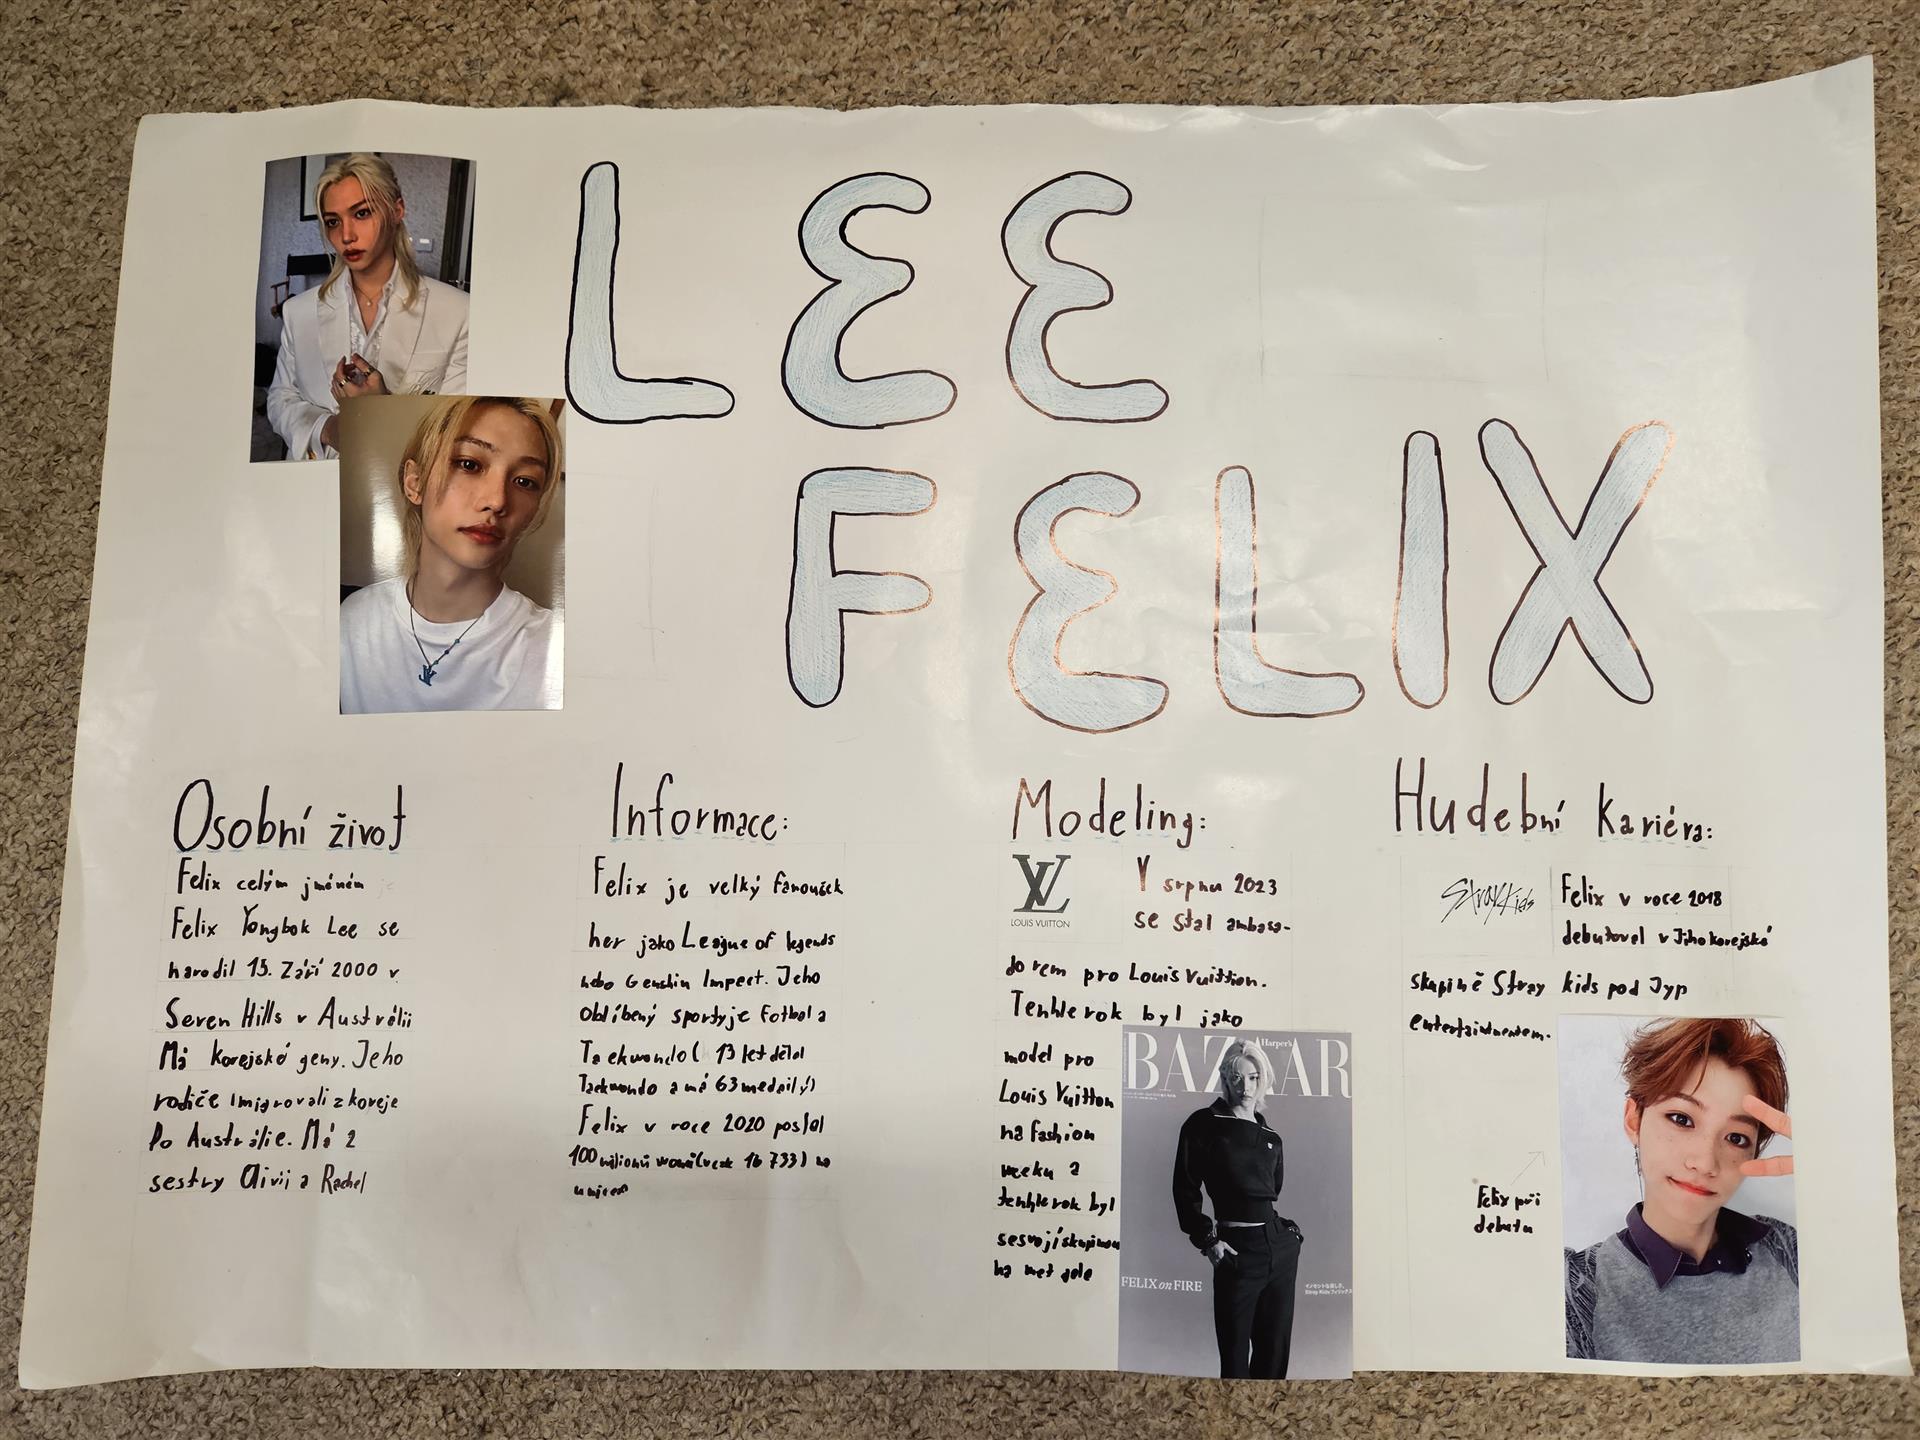 LEE
FELIX
Osobní život
Felix celým jménem je
Felix Yongbok Lee se
narodil 15. Září 2000 v
Seven Hills v Austrálii
Má korejské geny. Jeho
rodiče imigrovali z koreje
Do Austrálie. Má 2
sestry Olivii a Rachel
Informace:
Felix je velký fanoušek
her jako League of legends
nebo Genshin Impact. Jeho
oblíbený sporty je Fotbal a
Taekwondo( 13 let dělal
Taekwondo a má 63 medailý)
Felix v roce 2020 poslal
100 milionů wonů(
16 733)
Modeling:
LV
LOUIS VUITTON
V srpnu 2023
se stal ambasa-
dorem pro Louis Vuittion.
Tenhle rok byl jako
model pro
Louis Vuitton
na fashion
weeku a
tenhle rok byl
se svojí skupinou
na met gale
Harper's
BAZAAR
FELIX on FIRE
Hudební kariéra:
Stray Kids
Felix v roce 2018
debutovel v Jihokorejské
skupině Stray kids pod Jyp
entertainmentem.
Felix při
debutu